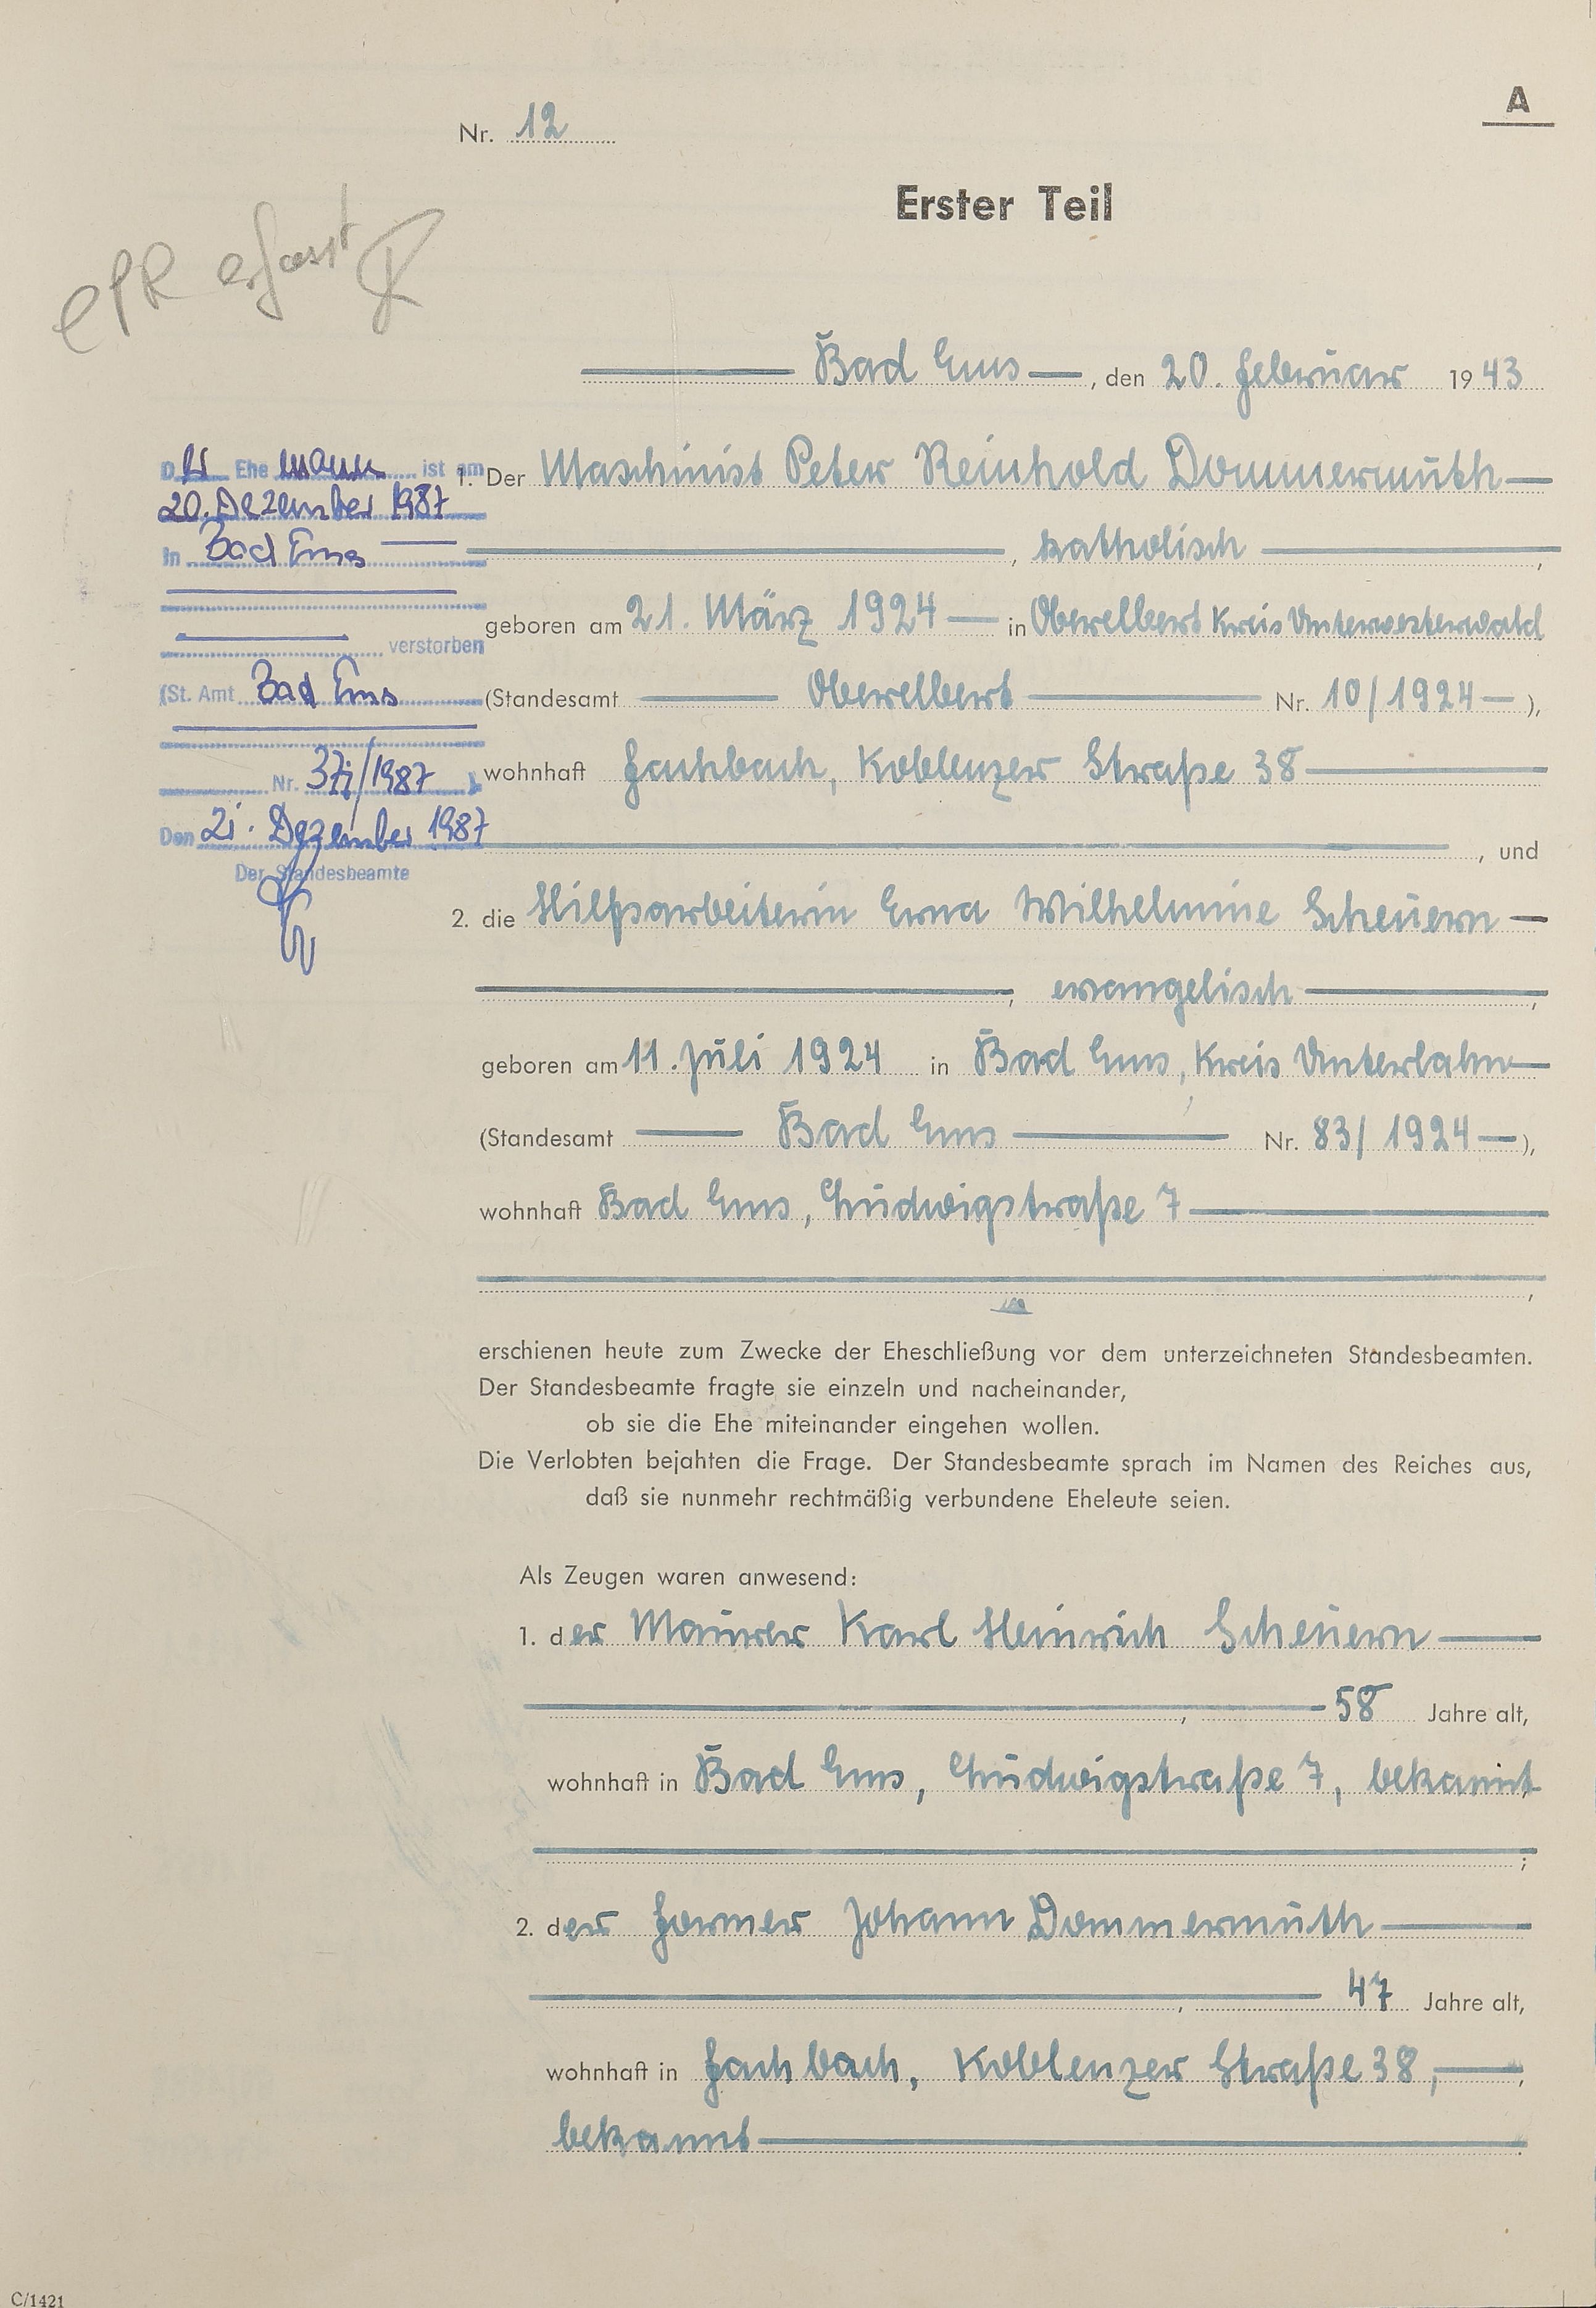 A
Nr. 12
Erster Teil
ePR erfasst
Bad Ems, den 20. Februar 1943
1. Der Maschinist Peter Reinhold Dommermuth
, katholisch,
geboren am 21. März 1924 in Oberelbert Kreis Unterwesterwald
(Standesamt Oberelbert Nr. 10/1924),
wohnhaft Fachbach, Koblenzer Straße 38
, und
2. die Hilfsarbeiterin Erna Wilhelmine Scheuern
, evangelisch,
geboren am 11. Juli 1924 in Bad Ems, Kreis Unterlahn
(Standesamt Bad Ems Nr. 83/1924),
wohnhaft Bad Ems, Ludwigstraße 7
,
erschienen heute zum Zwecke der Eheschließung vor dem unterzeichneten Standesbeamten.
Der Standesbeamte fragte sie einzeln und nacheinander,
ob sie die Ehe miteinander eingehen wollen.
Die Verlobten bejahten die Frage. Der Standesbeamte sprach im Namen des Reiches aus,
daß sie nunmehr rechtmäßig verbundene Eheleute seien.
Als Zeugen waren anwesend:
1. der Maurer Karl Heinrich Scheuern
, 58 Jahre alt,
wohnhaft in Bad Ems, Ludwigstraße 7, bekannt
;
2. der Former Johann Dommermuth
, 47 Jahre alt,
wohnhaft in Fachbach, Koblenzer Straße 38,
bekannt.
Der Ehemann ist am
20. Dezember 1987
in Bad Ems
verstorben
(St. Amt Bad Ems
Nr. /1987)
Den 21. Dezember 1987
Der Standesbeamte
C/1421